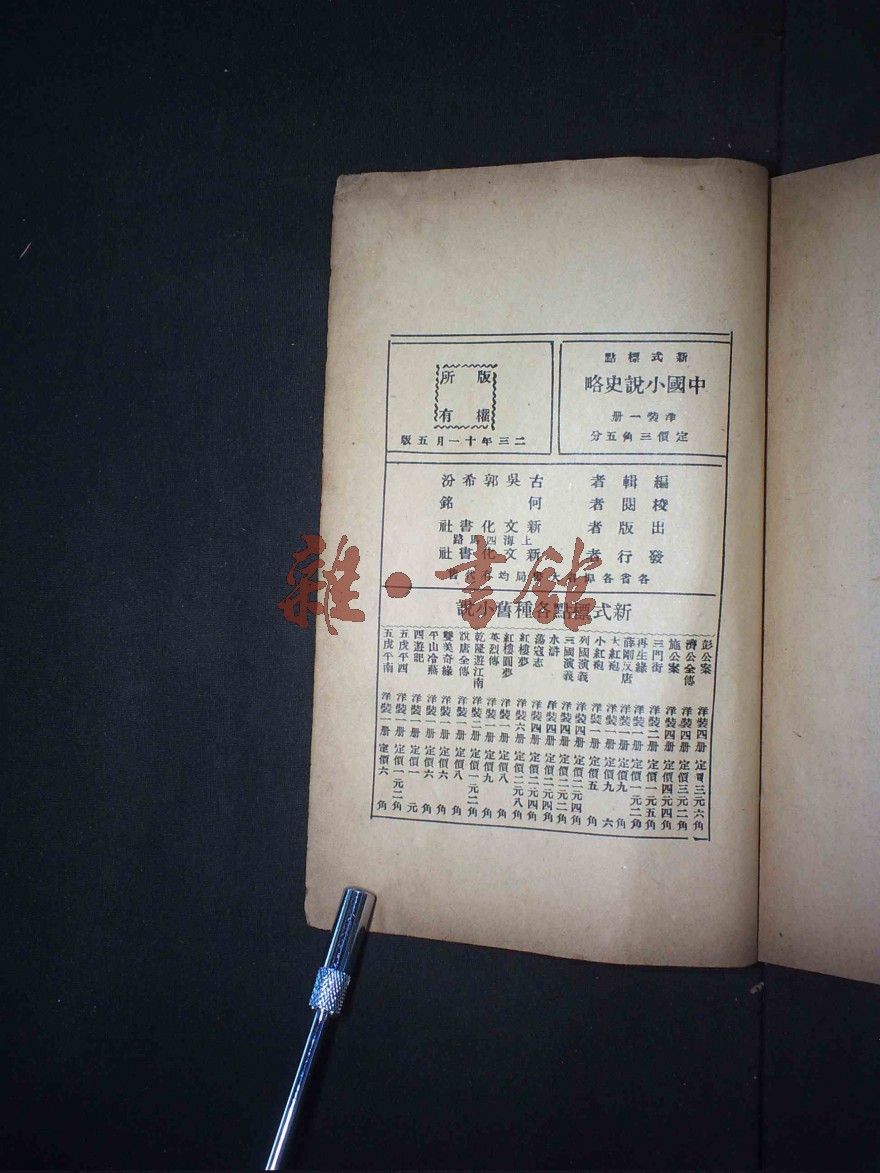 新式標點
中國小說史略
洋裝一册
定價三角五分
版權
所有
二三年十一月五版
編輯者 古吳郭希汾
校閱者 何銘
出版者 新文化書社
上海四馬路
發行者 新文化書社
各省各埠各大書局均有代售
新式標點各種舊小說
彭公案 洋裝四册 定價三元六角
濟公全傳 洋裝四册 定價三元二角
施公案 洋裝四册 定價四元四角
三門街 洋裝二册 定價一元五角
再生緣 洋裝一册 定價一元二角
薛剛反唐 洋裝一册 定價九角
大紅袍 洋裝一册 定價
小紅袍 洋裝一册 定價五角
列國演義 洋裝四册 定價二元四角
三國演義 洋裝四册 定價二元二角
水滸 洋裝四册 定價二元四角
蕩寇志 洋裝四册 定價二元四角
紅樓夢 洋裝六册 定價二元八角
紅樓圓夢 洋裝一册 定價八角
英烈傳 洋裝一册 定價九角
乾隆遊江南 洋裝二册 定價一元二角
說唐全傳 洋裝一册 定價八角
雙美奇緣 洋裝一册 定價六角
平山冷燕 洋裝一册 定價六角
四遊記 洋裝一册 定價一元
五虎平西 洋裝一册 定價一元二角
五虎平南 洋裝一册 定價六角
雜·書館